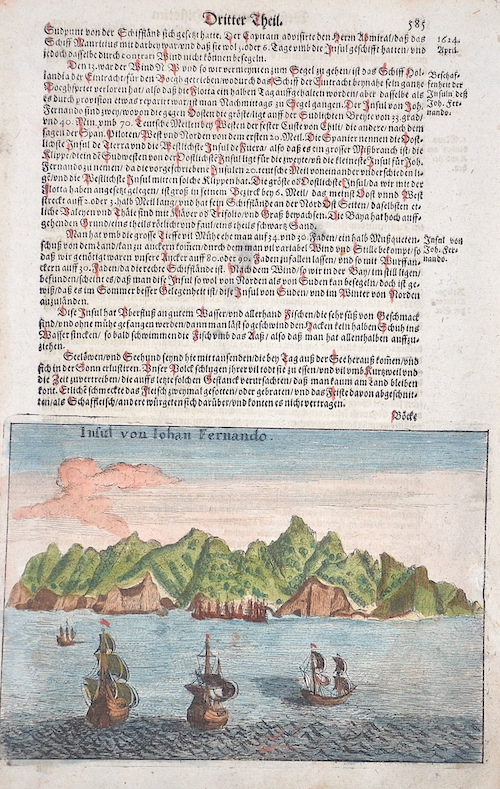 Dritter Theil. 585
Südpunt von der Schiffständ sich gesetzt hatte. Der Capitain advisirte den Herrn Admiral/ daß das
Schiff Mauritius mit darbey war/ vnd daß sie wol 5. oder 6. Tage vmb die Insul geschifft hatten/ vnd
jedoch dasselbe durch contrari Wind nicht können besegeln.
1624.
April.
Den 13. war der Wind N. W. vnd so wir vermeynten zum Segel zu gehen/ ist das Schiff Hol-
landia der Eintracht für den Boegh getrieben/ wodurch das Schiff der Eintracht beynahe sein gantze
Boeghsprietverloren hat/ also daß die Flotta ein halben Tag auffgehalten worden/ aber dasselbe als
es durch provision etwas repariert war ist man Nachmittags zu Segel gangen. Der Insul von Joh.
Fernando sind zwey/ wovon die gegen Osten die gröste/ ligt auff der Sudlichen Breyte von 33. grad/
vnd 40. Min. vmb 70. Teutsche Meilen bey Westen der fester Custe von Chili/ die ander/ nach dem
sagen der Span. Piloten/ West vnd Norden von dem ersten 20. Meil. Die Spanier nennen die Ost-
lichste Insul de Tierra vnd die Westlichste Insul de Fuera/ also daß es ein grosser Mißbrauch ist die
Klippe/ die in dē Sudwesten von der Ostlichste Insul ligt für die zweyte/ vñ die kleineste Insul für Joh.
Fernando zu nemen/ da die vorgeschriebne Insulen 20. teutsche Meil von einander vnderschieden li-
gē/ vnd die Westlichste Insul mitten in sich Klippen hat. Die gröste oft Ostlichste Insul/ da wir mit der
Flotta haben angesetzt gelegen/ ist groß in seinem Bezirck bey 6. Meil/ das meinst Oost vnnd West
streckt auff 2. oder 3. halb Meil lang/ vnd hat sein Schiffstände an der Nord Ost Seiten/ daselbsten et-
liche Valeyen vnd Thäle sind mit Klaver oft Trifolio/ vnd Graß bewachsen. Die Baya hat hoch auff-
gehenden Grund/ eins theils rötlich/ vnd sunst/ eins theils schwarz Sand.
Beschaf-
fenheit der
Insulen deß
Joh. Fer-
nando.
Man hat vmb die grosse Tieffe vil Mühe/ ehe man auff 34. vnd 30. Faden/ ein halb Mußqueten-
schuß von dem Land/ kan zu anckern komen/ durch dem man vil variabel Wind vnd Stille bekompt/ so
daß wir genötigt waren vnsere Ancker auff 80. oder 90. Faden zu fallen lassen/ vnd so mit Wurffan-
ckern auff 30. Faden/ da die rechte Schiffstände ist. Nach dem Wind/ so wir in der Bay/ im still ligen/
befunden/ scheint es/ daß man die Insul so wol von Norden als von Suden kan besegeln/ doch ist ge-
wiß/ daß es im Sommer besser Gelegenheit ist/ die Insul von Suden/ vnd im Winter von Norden
anzuländen.
Insul von
Joh. Fer-
nando.
Dise Insul hat Vberfluß an gutem Wasser/ vnd allerhand Fischen/ die sehr süß von Geschmack
sind/ vnd ohne mühe gefangen werden/ dann man läst so geschwind den Hacken kein halben Schuh ins
Wasser sincken/ so bald schwimmen die Fisch vmb das Aaß/ also daß man hat allenthalben auffzu-
ziehen.
Seelöwen/ vnd Seehund seynd hie mit tausenden/ die bey Tag auß der See herauß komen/ vnd
sich in der Sonn erlustiren. Vnser Volck schlugen jhrer vil todt sie zu essen/ vnd vil vmb Kurtzweil vnd
die Zeit zuvertreiben/ die auffs letzte solchen Gestanck verursachten/ daß man kaum am Land bleiben
kont. Etliche schmeckte das Fleisch zweymal gesotten/ oder gebraten/ vnd das Feiste davon abgeschnit-
ten/ als Schaffleisch/ andere würgeten sich darüber/ vnd konten es nicht vertragen.
Böcke
Insul von Iohan Fernando.